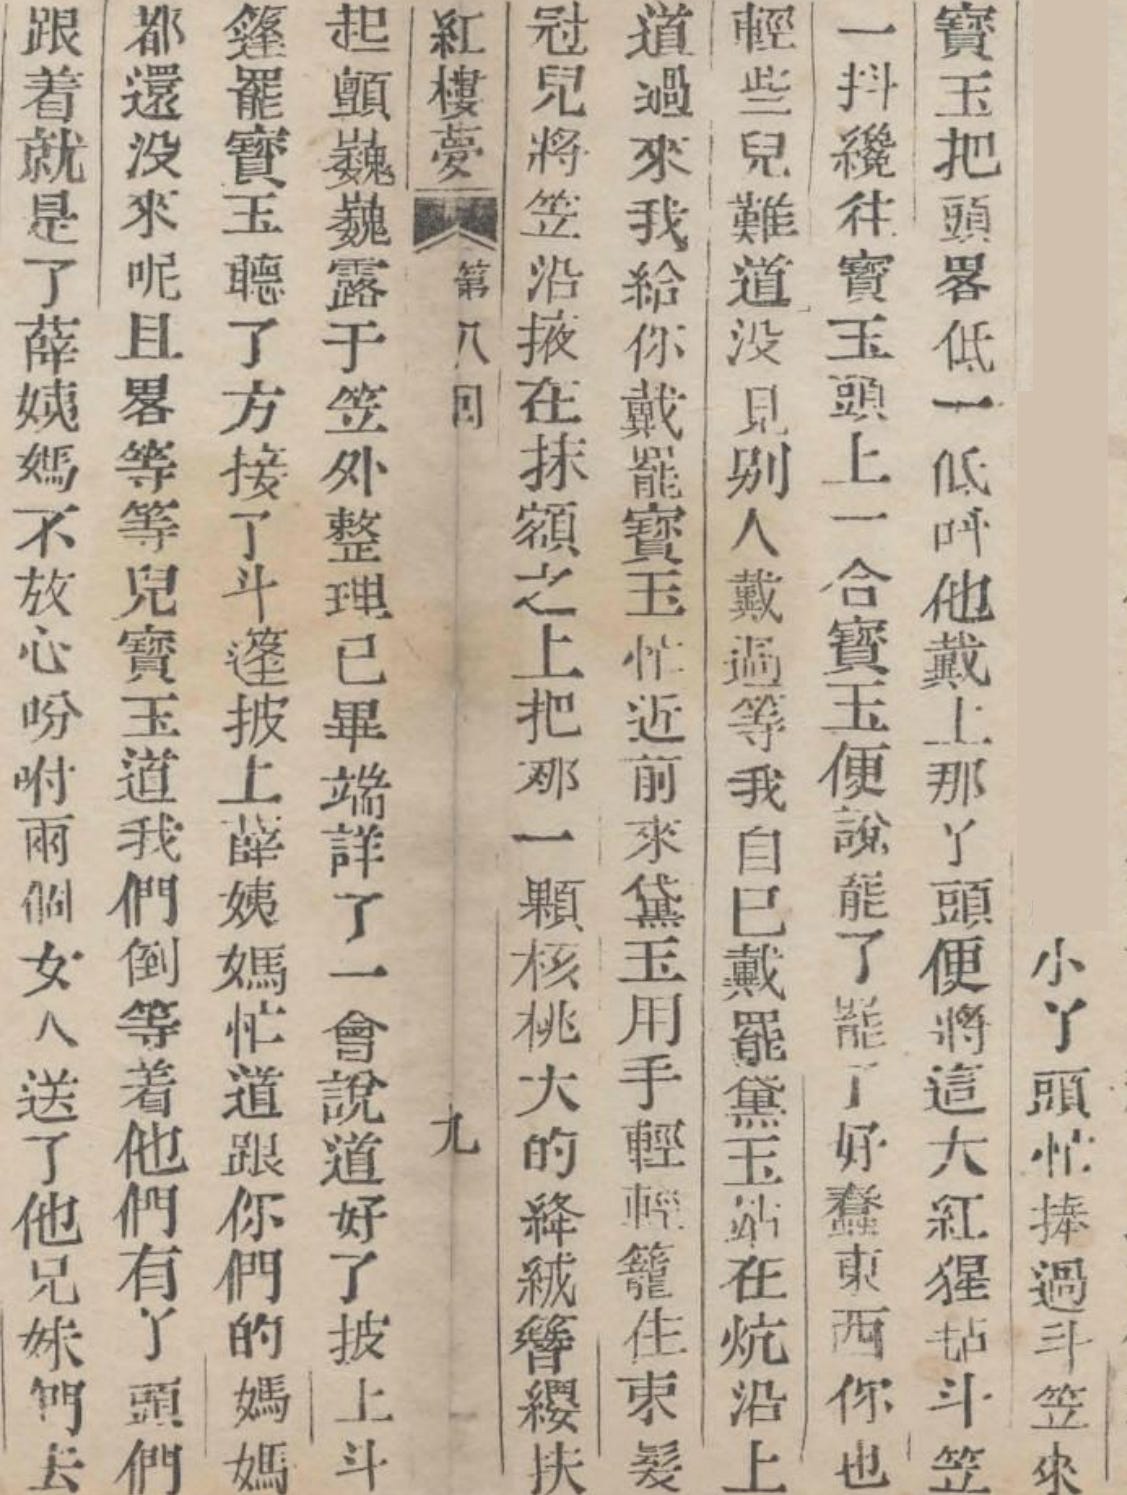 小丫頭忙捧過斗笠來
寳玉把頭畧低一低呌他戴上那丫頭便將這大紅猩毡斗笠
一抖纔往寳玉頭上一合寳玉便說罷了罷了好蠢東西你也
輕些兒難道没見别人戴過等我自已戴罷黛玉站在炕沿上
道過來我給你戴罷寳玉忙近前來黛玉用手輕輕籠住束髮
冠兒將笠沿掖在抹額之上把那一顆核桃大的絳絨簪纓扶
紅樓夢 第八回 九
起顫巍巍露于笠外整理已畢端詳了一會說道好了披上斗
篷罷寳玉聽了方接了斗篷披上薛姨媽忙道跟你們的媽媽
都還没來呢且畧等等兒寳玉道我們倒等着他們有丫頭們
跟着就是了薛姨媽不放心吩咐兩個女人送了他兄妹們去